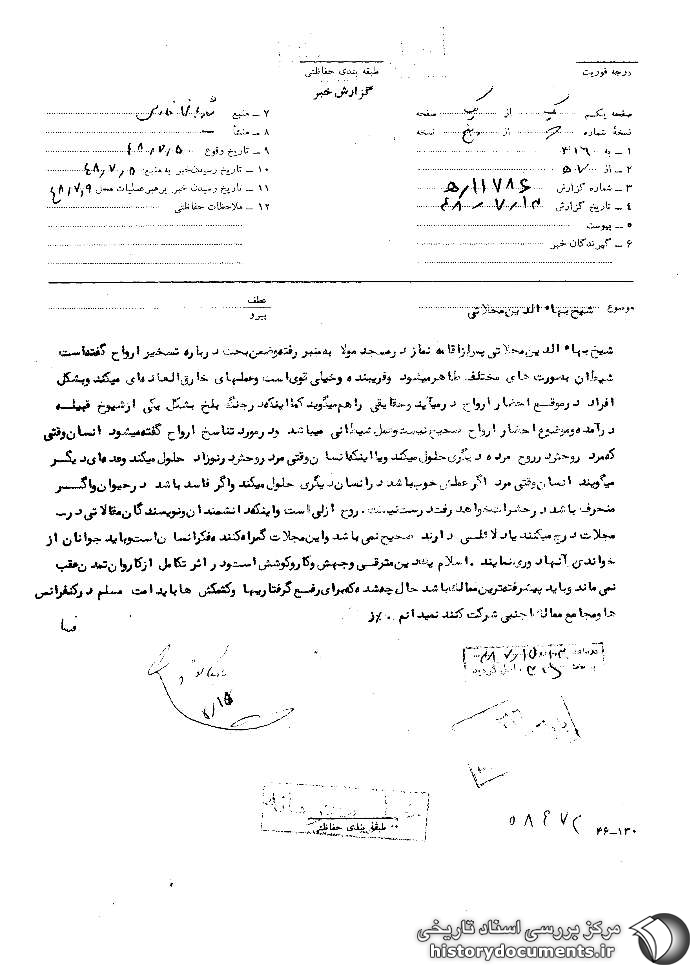 درجه فوریت
طبقه بندی حفاظتی
گزارش خبر
صفحه یکم یک از یک صفحه
نسخهٔ شماره از پنج نسخه
۱ – به ۳۱۶
۲ – از ۵۷
۳ – شماره گزارش ۵/۱۱۷۸۶
۴ – تاریخ گزارش ۴۸/۷/۱۳
۵ – پیوست
۶ – گیرندگان خبر
۷ – منبع
۸ – منشأ
۹ – تاریخ وقوع ۴۸/۷/۵
۱۰ – تاریخ رسیدن خبر به منبع ۴۸/۷/۵
۱۱ – تاریخ رسیدن خبر برهبر عملیات محل ۴۸/۷/۹
۱۲ – ملاحظات حفاظتی
موضوع شیخ بهاء الدین محلاتی
عطف
پیرو
شیخ بهاء الدین محلاتی پس از اقامه نماز در مسجد مولا به منبر رفته و ضمن بحث درباره تسخیر ارواح گفته است
شیطان به صورت های مختلف ظاهر میشود و فریبنده و خیلی قوی است و عملهای خارق العاده ای میکند و بشکل
افراد در موقع احضار ارواح در میآید و حقایقی را هم میگوید کما اینکه در جنگ بلخ بشکل یکی از شیوخ قبیله
درآمده و موضوع احضار ارواح صحیح نیست و عمل شیطانی میباشد و در مورد تناسخ ارواح گفته میشود انسان وقتی
که مرد روحش در روح مرده دیگری حلول میکند و یا اینکه انسان وقتی مرد روحش در نوزاد حلول میکند و عده ای دیگر
میگویند انسان وقتی مرد اگر عملش خوب باشد در انسان دیگری حلول میکند و اگر فاسد باشد در حیوان و اگر
منحرف باشد در حشرات خواهد رفت درست نیست. روح ازلی است و اینکه دانشمندان و نویسندگان مقالاتی در
مجلات درج میکنند یا دلائلی دارند صحیح نمی باشد و این مجلات گمراه کننده فکر انسان است و باید جوانان از
خواندن آنها دوری نمایند. اسلام یک دین مترقی و جهش و کار و کوشش است و در اثر تکامل از کاروان تمدن عقب
نمی ماند و باید پیشرفته ترین ممالک باشد حال چه شده که برای رفع گرفتاریها و کشمکش ها باید امت مسلم در کنفرانس
ها و مجامع ممالک اجنبی شرکت کنند نمیدانم.
۷/۱۵
طبقه بندی حفاظتی
۵۸۴۷۲
۴۶–۱۳۰
مرکز بررسی اسناد تاریخی
historydocuments.ir